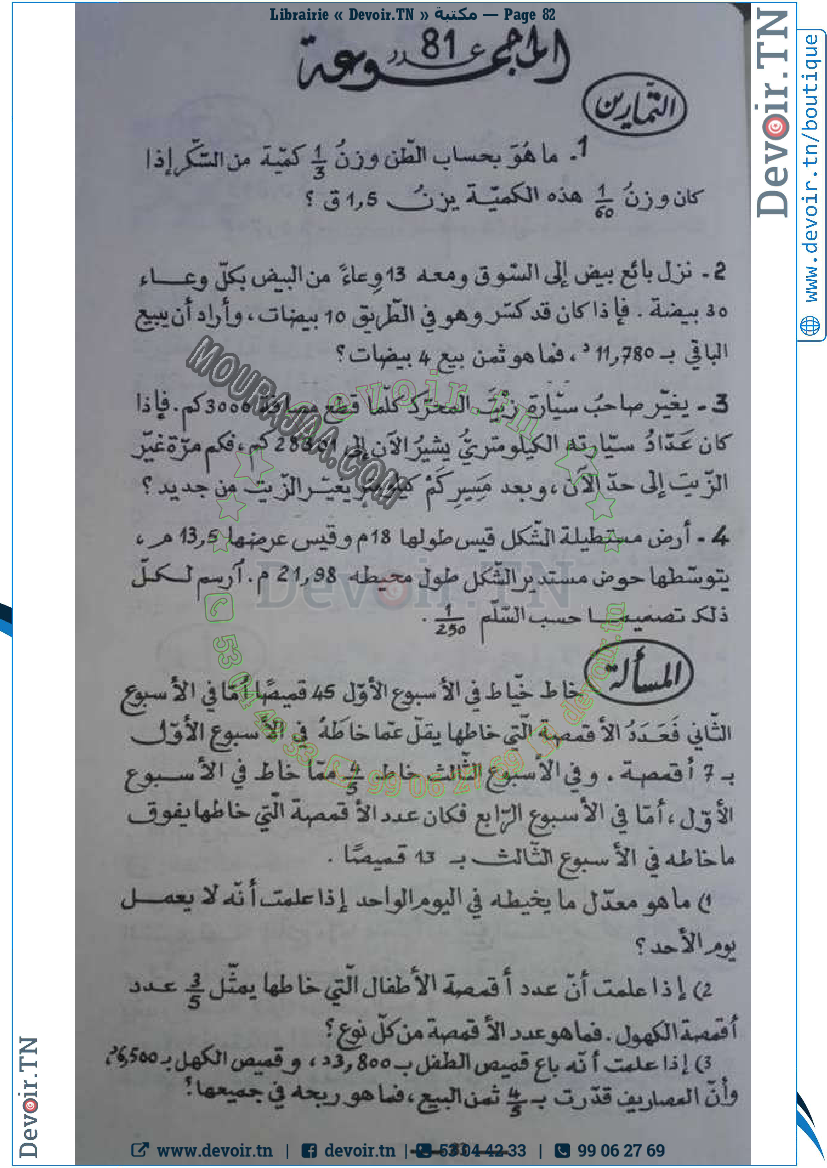 Librairie « Devoir.TN » مكتبة — Page 82
المجموعة عدد 81
التمارين
1- ما هُوَ بحساب الطّن وزنُ 1/3 كمّية من السّكر إذا
كان وزنُ 1/60 هذه الكميّة يزنُ 1,5 ق ؟
2- نزل بائع بيض إلى السّوق ومعه 13 وِعاءً من البيض بكلّ وعاء
30 بيضة . فإذا كان قد كسّر وهو في الطّريق 10 بيضات، وأراد أن يبيع
الباقي بـ 11,780 د، فما هو ثمن بيع 4 بيضات؟
3- يغيّر صاحبُ سيّارة زيْتَ المحرّك كلّما قطع مسافة 3000 كم. فإذا
كان عَدّادُ سيّارته الكيلومتريُّ يشيرُ الآن إلى كم، فكم مرّة غيّر
الزّيتَ إلى حدّ الآن، وبعد مَسِيرِ كَمْ يغيّر الزّيت من جديد ؟
4- أرض مستطيلة الشّكل قيس طولها 18م وقيس عرضها 13,5 م،
يتوسّطها حوض مستدير الشّكل طول محيطه 21,98 م. أرسم لكلّ
ذلك تصميما حسب السّلّم 1/250 .
المسألة
خاط خيّاط في الأسبوع الأوّل 45 قميصًا أمّا في الأسبوع
الثّاني فَعَدَدُ الأقمصة الّتي خاطها يقلّ عمّا خاطَهُ في الأسبوع الأوّل
بـ 7 أقمصة . وفي الأسبوع الثّالث خاط 4/5 ممّا خاط في الأسبوع
الأوّل، أمّا في الأسبوع الرّابع فكان عدد الأقمصة الّتي خاطها يفوق
ما خاطه في الأسبوع الثّالث بـ 13 قميصًا .
1) ما هو معدّل ما يخيطه في اليوم الواحد إذا علمت أنّه لا يعمل
يوم الأحد ؟
2) إذا علمت أنّ عدد أقمصة الأطفال الّتي خاطها يمثّل 3/5 عدد
أقمصة الكهول. فما هو عدد الأقمصة من كلّ نوع ؟
3) إذا علمت أنّه باع قميص الطفل بـ 3,800د، وقميص الكهل بـ 6,500د،
وأنّ المصاريف قدّرت بـ 4/5 ثمن البيع، فما هو ربحه في جميعها؟
MOURAJAA.COM
devoir.tn
Devoir.TN
53 04 42 33
99 06 27 69
devoir.tn
Devoir.TN
www.devoir.tn/boutique
Devoir.TN
www.devoir.tn | devoir.tn | 53 04 42 33 | 99 06 27 69